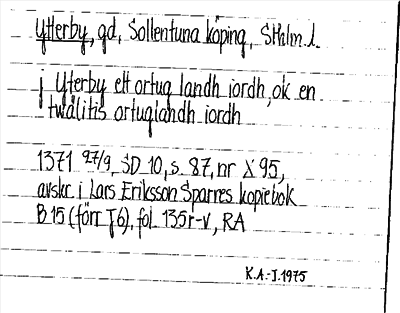 Ytterby, gd, Sollentuna köping, Sthlm. l.
j Yterby ett ortug landh iordh, ok en
twålitis ortuglandh iordh
1371 27/9, SD 10, s. 87, nr X 95,
avskr. i Lars Eriksson Sparres kopiebok
B 15 (förr J 6), fol. 135 r-v, RA
K.A.-I. 1975